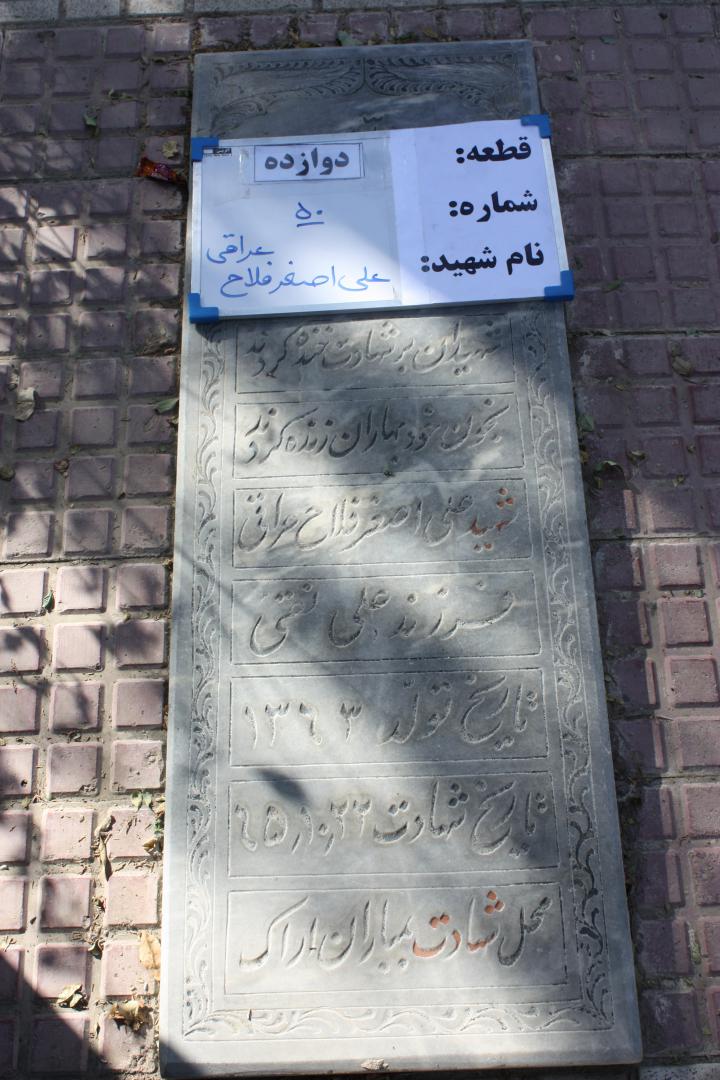 قطعه: دوازده
شماره: ۵۰
نام شهید: علی اصغر فلاح عراقی
شهیدان بر شهادت خنده کردند
بخون خود بهاران زنده کردند
شهید علی اصغر فلاح عراقی
فرزند علی نقی
تاریخ تولد ۱۳۶۳
تاریخ شهادت ۶۵٫۱۰٫۲۲
محل شهادت بمباران اراک